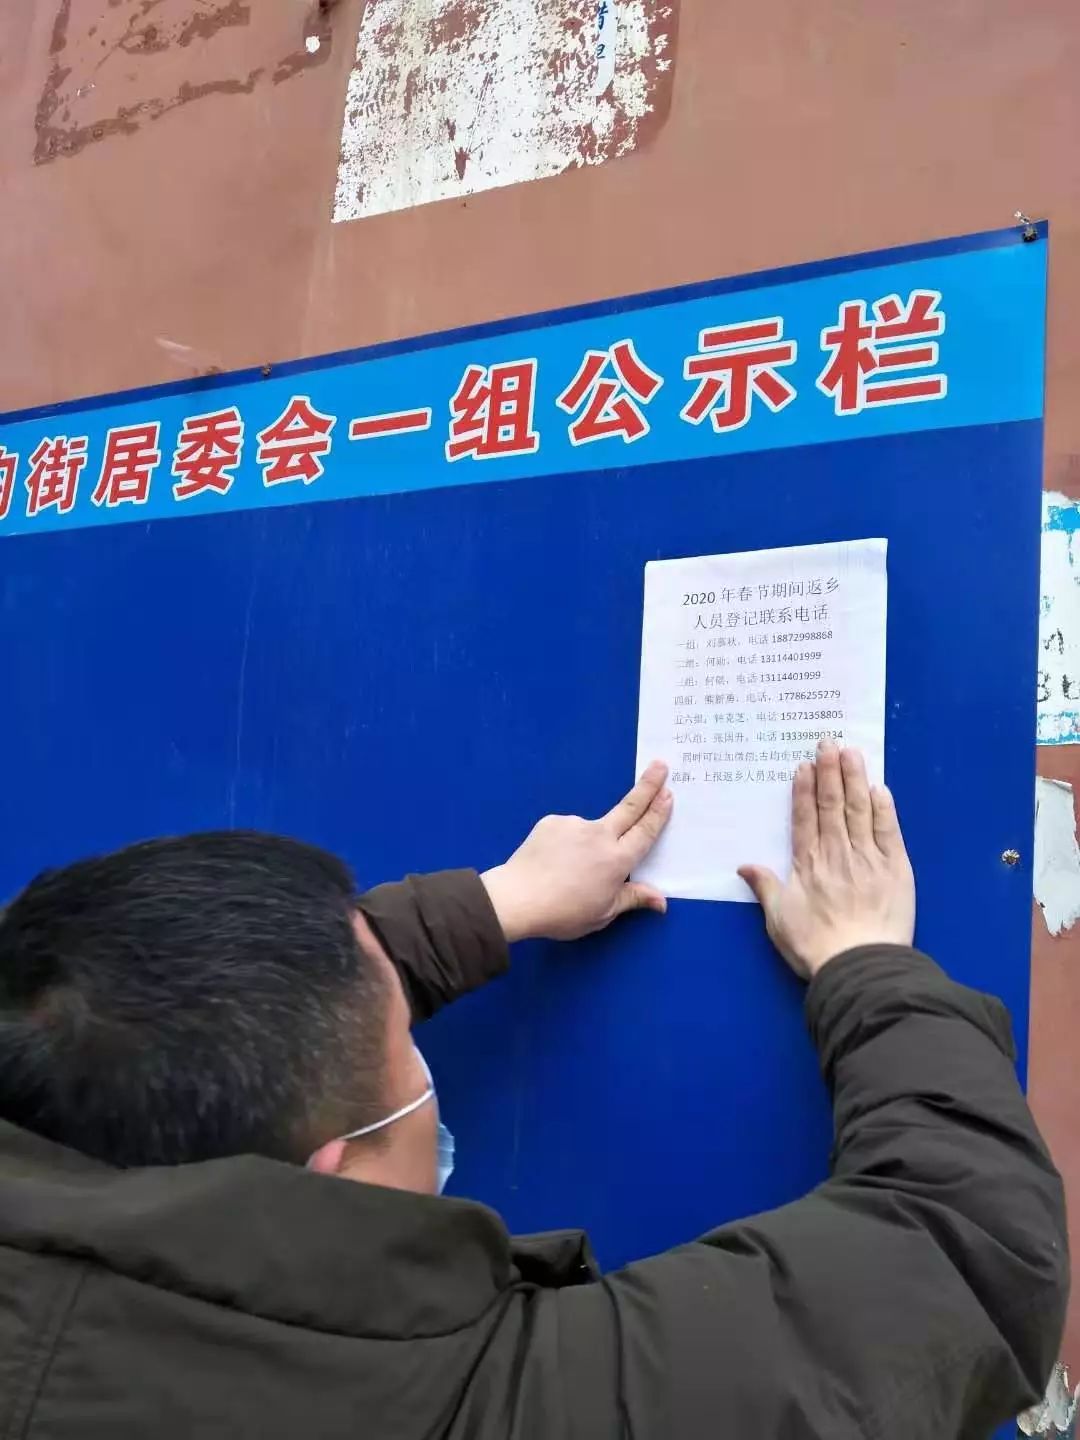 街居委会一组公示栏
2020 年春节期间返乡
人员登记联系电话
一组：刘慕秋，电话 18872998868
二组：何勋，电话 13114401999
三组：何 ，电话 13114401999
四组，熊新勇，电话，17786255279
五六组，钟克芝，电话 15271358805
七八组：张国升，电话 13339890334
同时可以加微信:古均街居委
群，上报返乡人员及电话